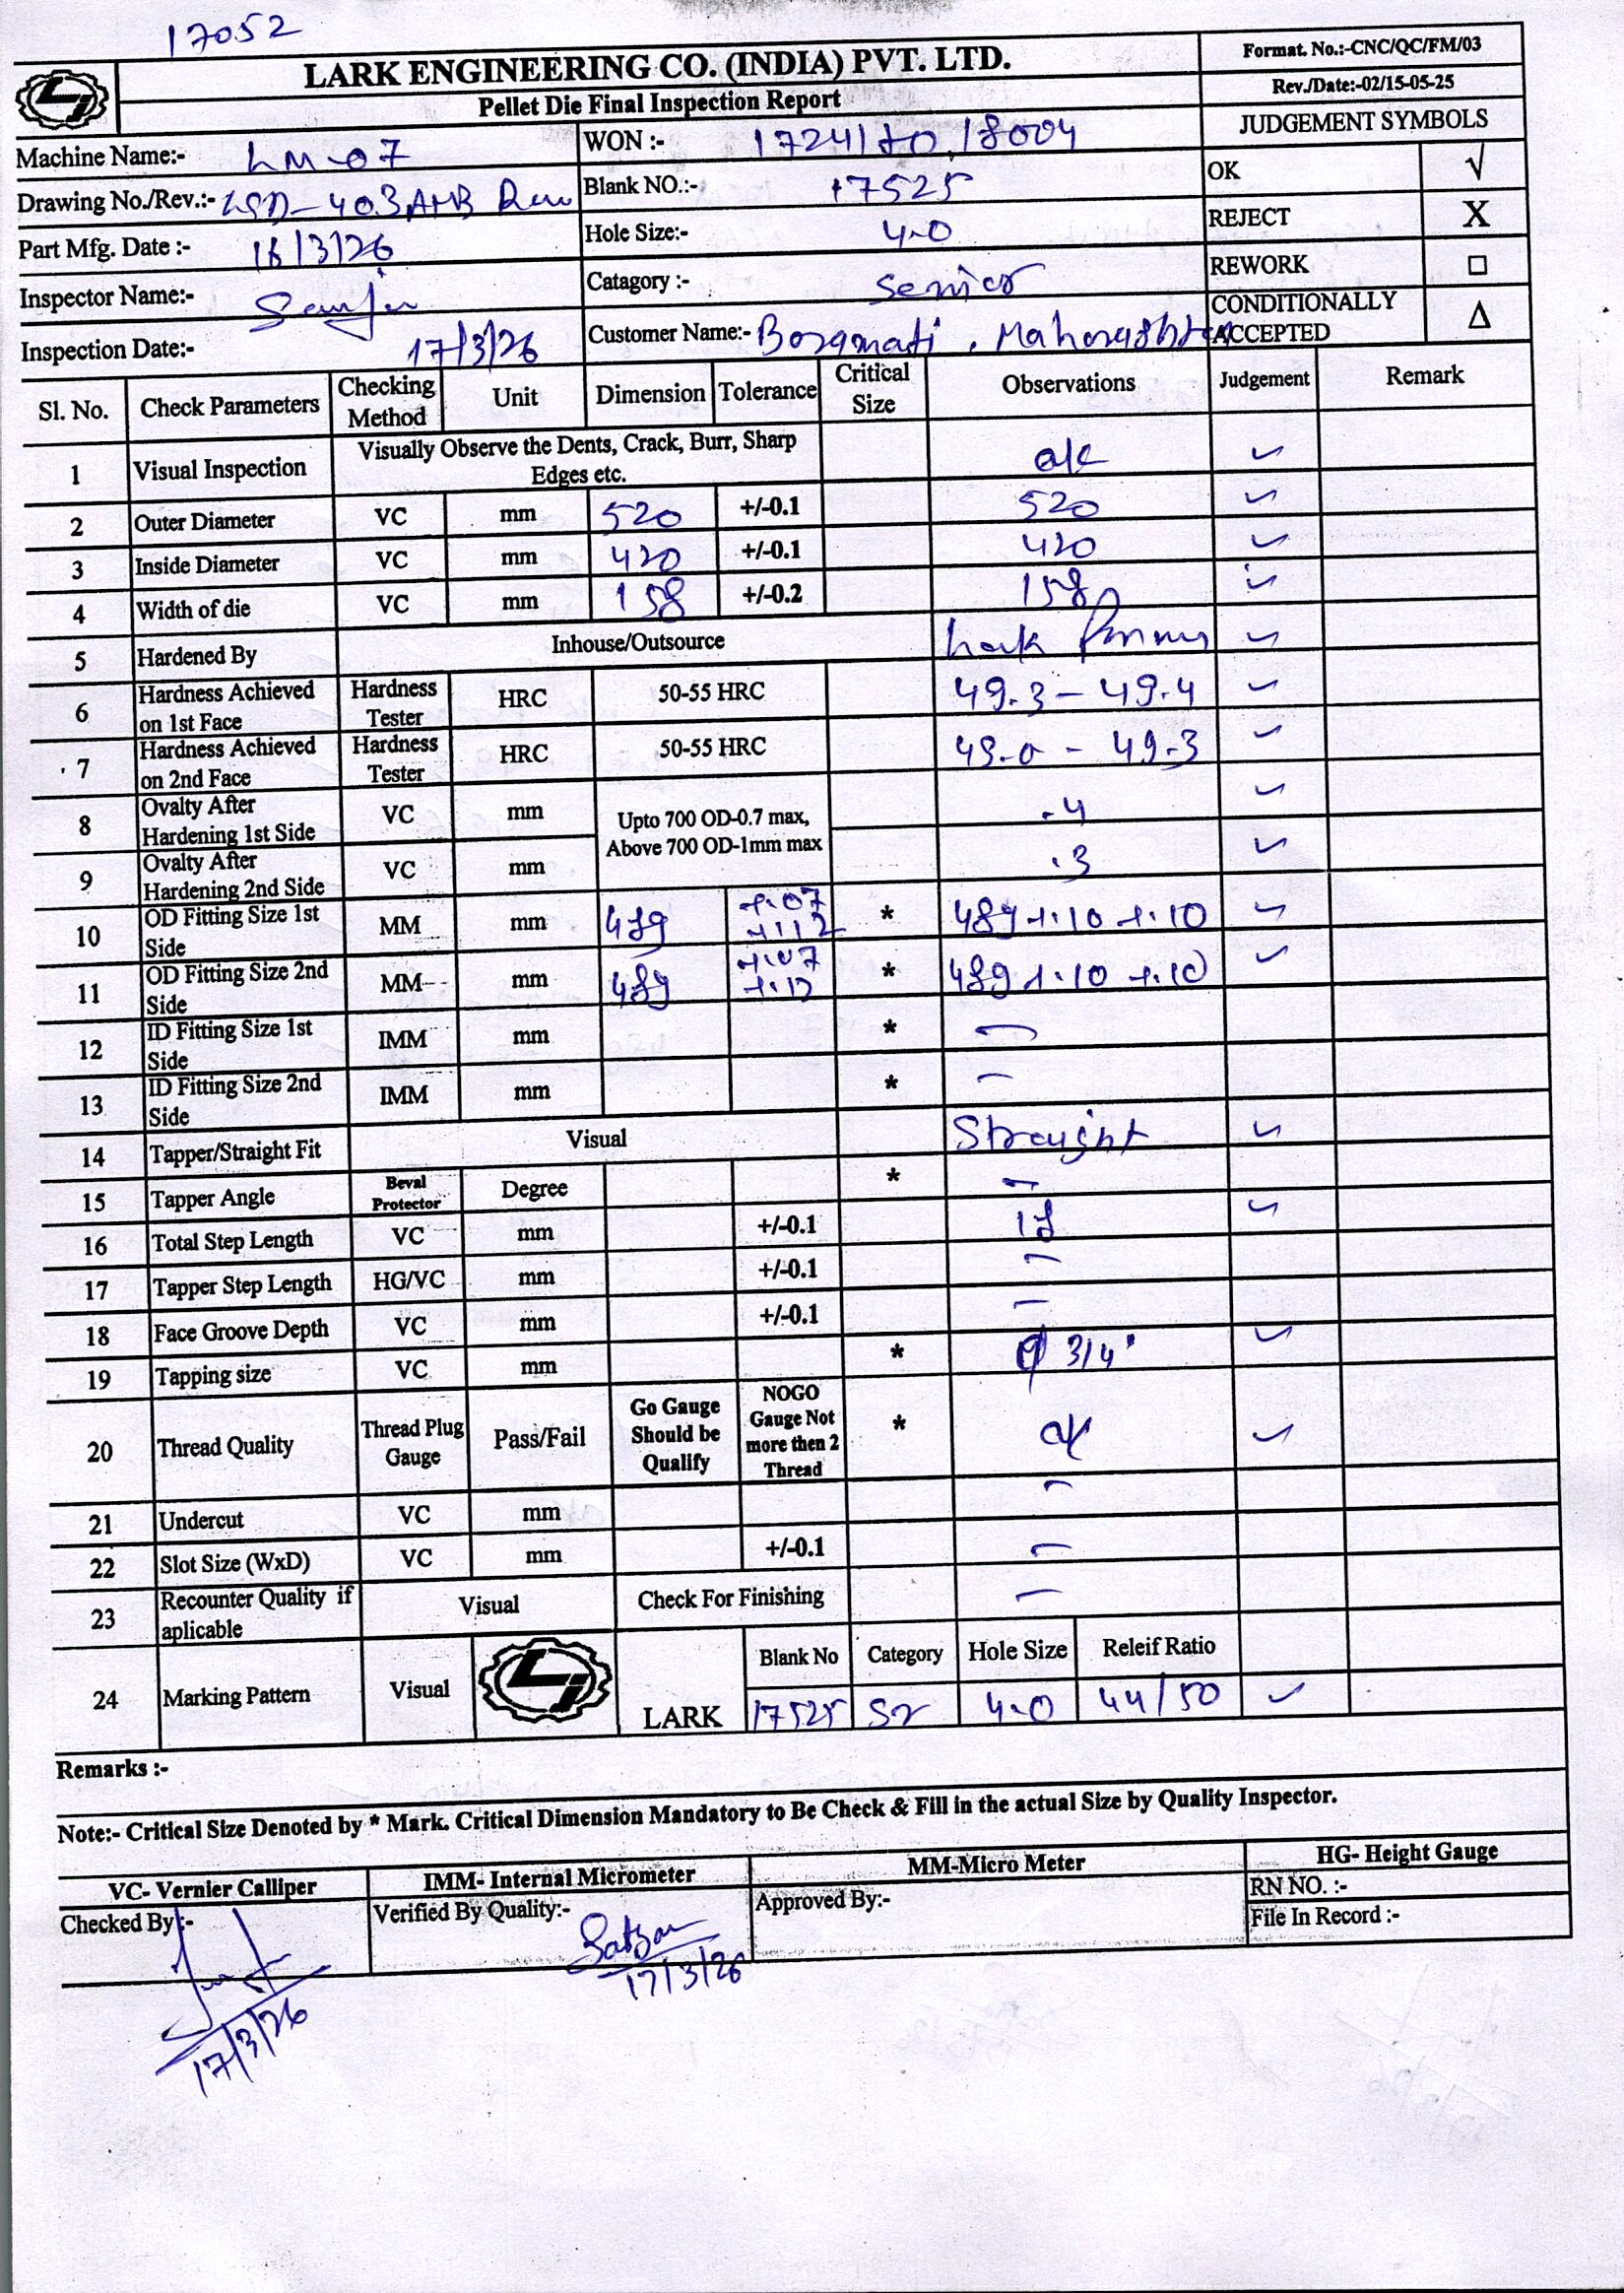 17052
LARK ENGINEERING CO. (INDIA) PVT. LTD.
Pellet Die Final Inspection Report
Format. No.:-CNC/QC/FM/03
Rev./Date:-02/15-05-25
JUDGEMENT SYMBOLS
OK √
REJECT X
REWORK □
CONDITIONALLY ACCEPTED Δ
Machine Name:- LM-07
WON :- 18004
Drawing No./Rev.:-
Blank NO.:- 17525
Part Mfg. Date :- 16/3/26
Hole Size:- 4.0
Inspector Name:- Sanju
Catagory :- Senior
Inspection Date:- 17/3/26
Customer Name:- Maharashtra
Sl. No. Check Parameters Checking Method Unit Dimension Tolerance Critical Size Observations Judgement Remark
1 Visual Inspection Visually Observe the Dents, Crack, Burr, Sharp Edges etc. ok ✓
2 Outer Diameter VC mm 520 +/-0.1 520 ✓
3 Inside Diameter VC mm 420 +/-0.1 420 ✓
4 Width of die VC mm 158 +/-0.2 158 ✓
5 Hardened By Inhouse/Outsource Lark ✓
6 Hardness Achieved on 1st Face Hardness Tester HRC 50-55 HRC 49.3 - 49.4 ✓
7 Hardness Achieved on 2nd Face Hardness Tester HRC 50-55 HRC 49.0 - 49.3 ✓
8 Ovalty After Hardening 1st Side VC mm Upto 700 OD-0.7 max, Above 700 OD-1mm max .4 ✓
9 Ovalty After Hardening 2nd Side VC mm .3 ✓
10 OD Fitting Size 1st Side MM mm 489 +.07 +.12 * 489 +.10 +.10 ✓
11 OD Fitting Size 2nd Side MM mm 489 +.07 +.12 * 489 +.10 +.10 ✓
12 ID Fitting Size 1st Side IMM mm * -
13 ID Fitting Size 2nd Side IMM mm * -
14 Tapper/Straight Fit Visual Straight ✓
15 Tapper Angle Beval Protector Degree * -
16 Total Step Length VC mm +/-0.1 ✓
17 Tapper Step Length HG/VC mm +/-0.1 -
18 Face Groove Depth VC mm +/-0.1 -
19 Tapping size VC mm * 3/4" ✓
20 Thread Quality Thread Plug Gauge Pass/Fail Go Gauge Should be Qualify NOGO Gauge Not more then 2 Thread * ok ✓
21 Undercut VC mm -
22 Slot Size (WxD) VC mm +/-0.1 -
23 Recounter Quality if aplicable Visual Check For Finishing -
24 Marking Pattern Visual LARK Blank No Category Hole Size Releif Ratio
17525 Sr 4.0 44/50 ✓
Remarks :-
Note:- Critical Size Denoted by * Mark. Critical Dimension Mandatory to Be Check & Fill in the actual Size by Quality Inspector.
VC- Vernier Calliper IMM- Internal Micrometer MM-Micro Meter HG- Height Gauge
Checked By :- Verified By Quality:- Approved By:- RN NO. :-
File In Record :-
17/3/26
17/3/26